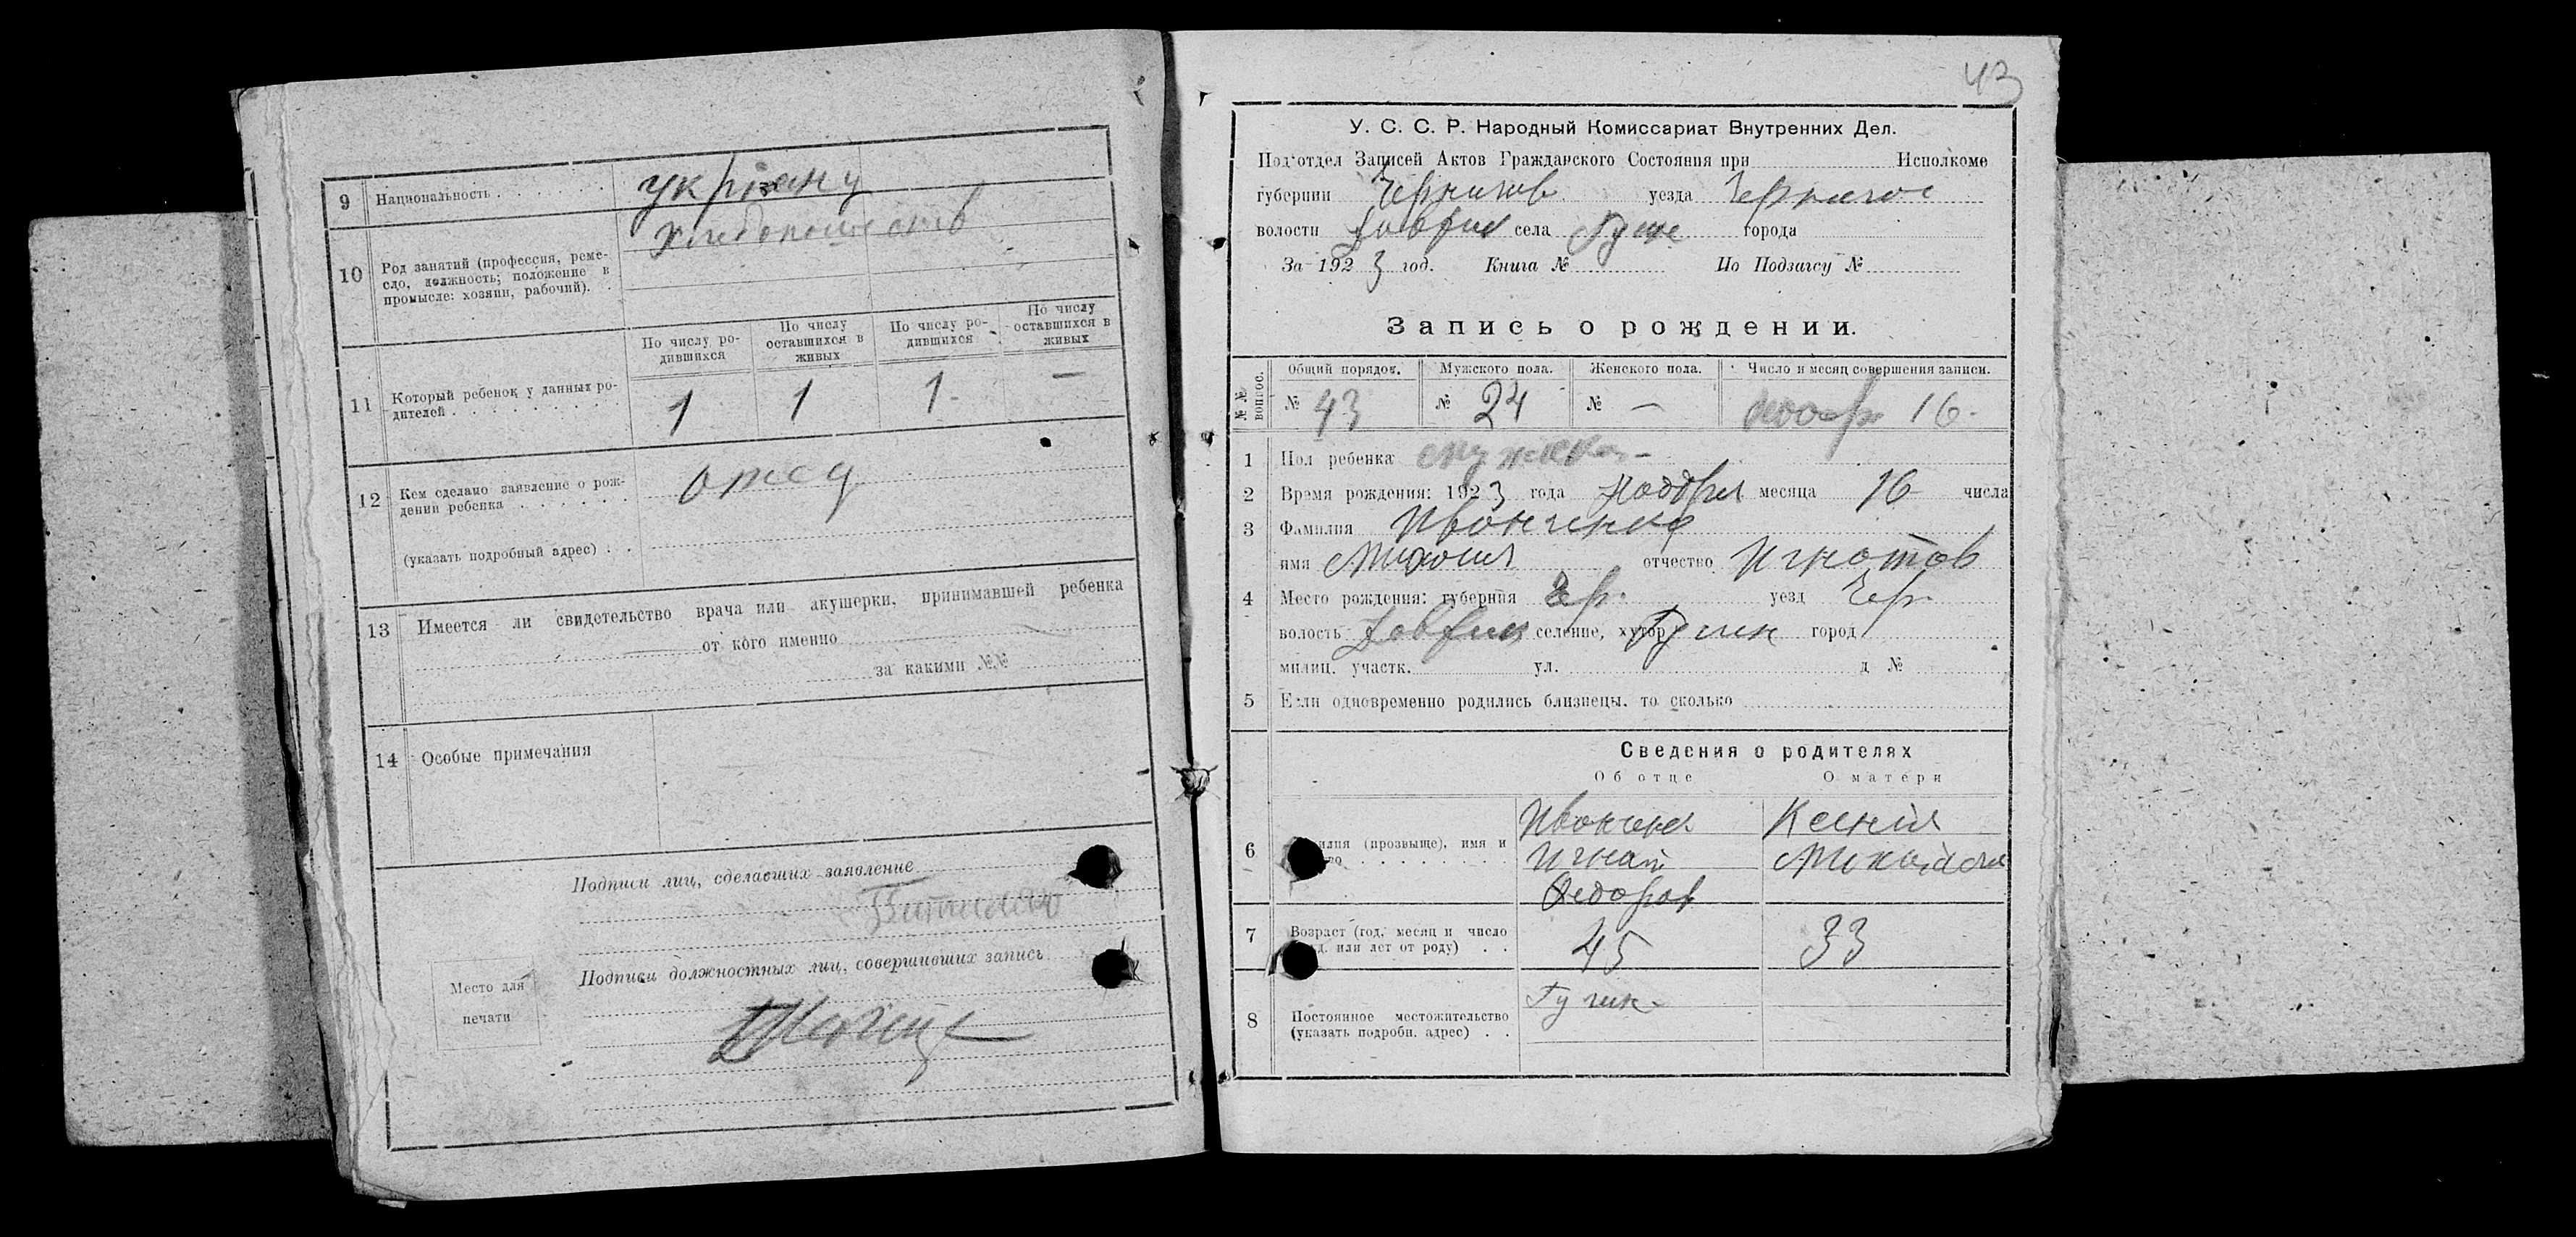 9 Национальность . . . . . . . укріану
10 Род занятий (профессия, реме-
сло, должность; положение в
промысле: хозяин, рабочий). .
По числу ро-
дившихся
По числу
оставшихся в
живых
По числу ро-
дившихся
По числу
оставшихся в
живых
11 Который ребенок у данных ро-
дителей . . . . . . . . . .
1 1 1 —
12 Кем сделано заявление о рож-
дении ребенка . . . . . .
отец
(указать подробный адрес) . .
13 Имеется ли свидетельство врача или акушерки, принимавшей ребенка
от кого именно
за какими №№
14 Особые примечания
Подписи лиц, сделавших заявление
Подписи должностных лиц, совершивших запись
Место для
печати
43
У. С. С. Р. Народный Комиссариат Внутренних Дел.
Под'отдел Записей Актов Гражданского Состояния при Исполкоме
губернии Чернигов уезда Чернигов
волости села города
За 1923 год. Книга № По Подзагсу №
Запись о рождении.
№№ вопрос.
Общий порядок. Мужского пола. Женского пола. Число и месяц совершения записи.
№ 43 № 24 № — ноабр 16
1 Пол ребенка мужска
2 Время рождения: 1923 года Ноабря месяца 16 числа
3 Фамилия Иванченко
имя Михаил отчество Игнатов
4 Место рождения: губерния Чер. уезд Чер.
волость селение, хутор город
милиц. участк. ул. д №
5 Если одновременно родились близнецы, то сколько
Сведения о родителях
Об отце О матери
6 (прозвыще), имя и
Иванченко
Игнат
Федоров
Ксенія
Миколаевна
7 Возраст (год, месяц и число
или лет от роду) . .
45 33
8 Постоянное местожительство
(указать подробн. адрес) . .